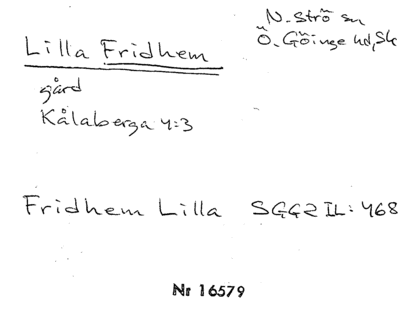 N. Strö sn
Lilla Fridhem
Ö. Göinge hd, Sk
gård
Kålaberga 4:3
Fridhem Lilla SGG2 IL: 468
Nr 16579